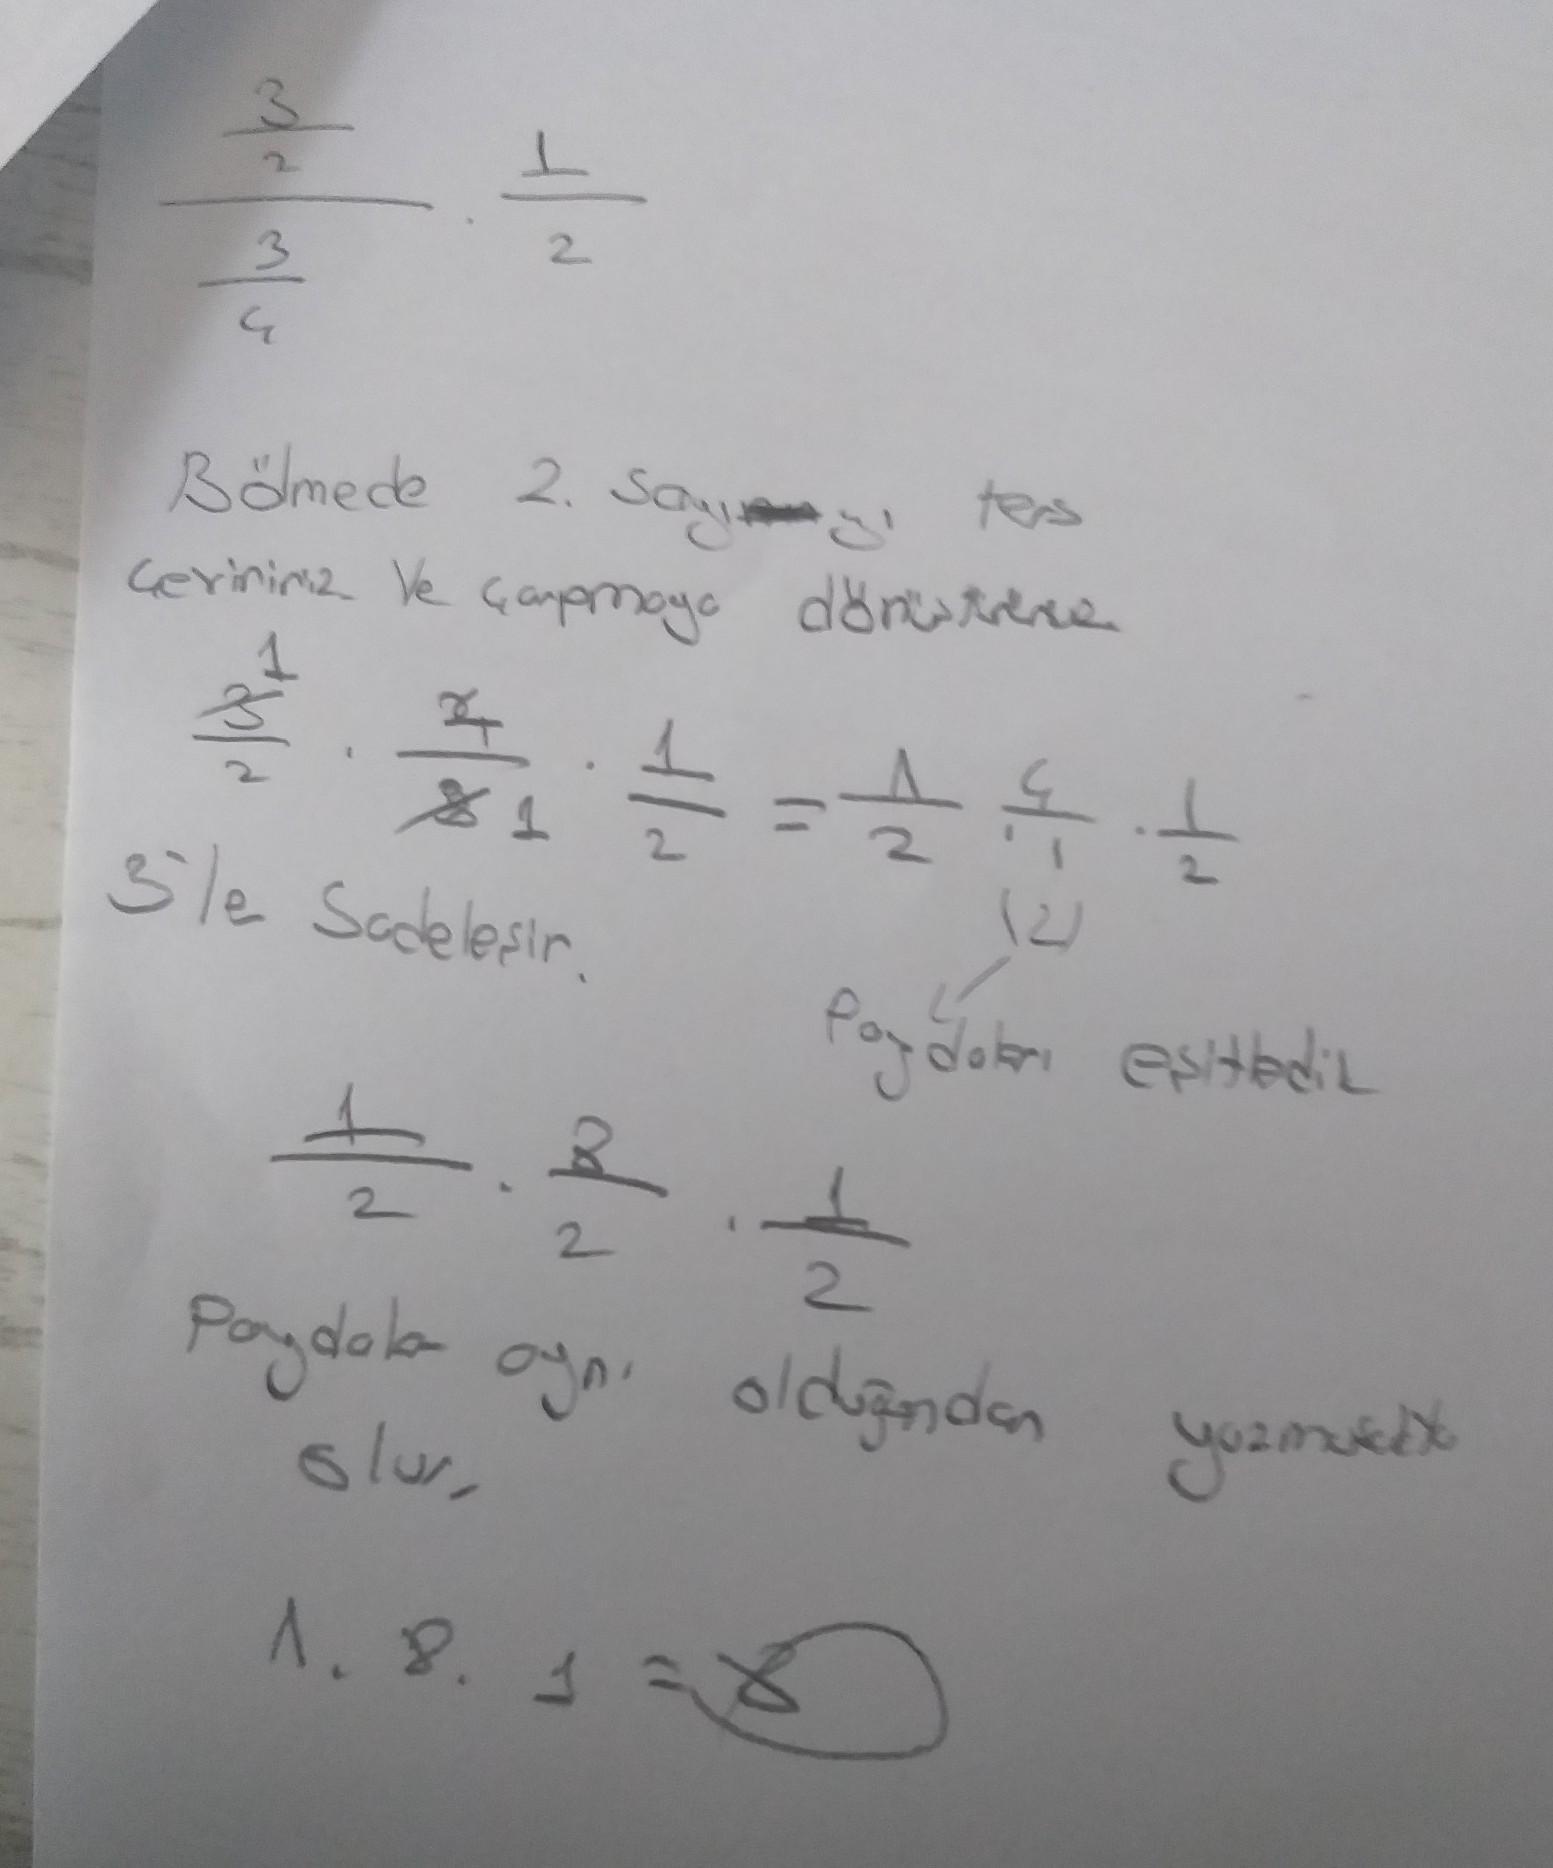 3/2 / 3/4 . 1/2
Bölmede 2. Sayıyı ters
Çeviririz Ve Çarpmaya
3/2 1 . 4/3 1 . 1/2 = 1/2 . 4/1 . 1/2
3'le Sadeleşir. (2)
Paydaları eşitledik
1/2 . 8/2 . 1/2
Paydalar aynı olduğundan
olur.
1. 8. 1 = 8